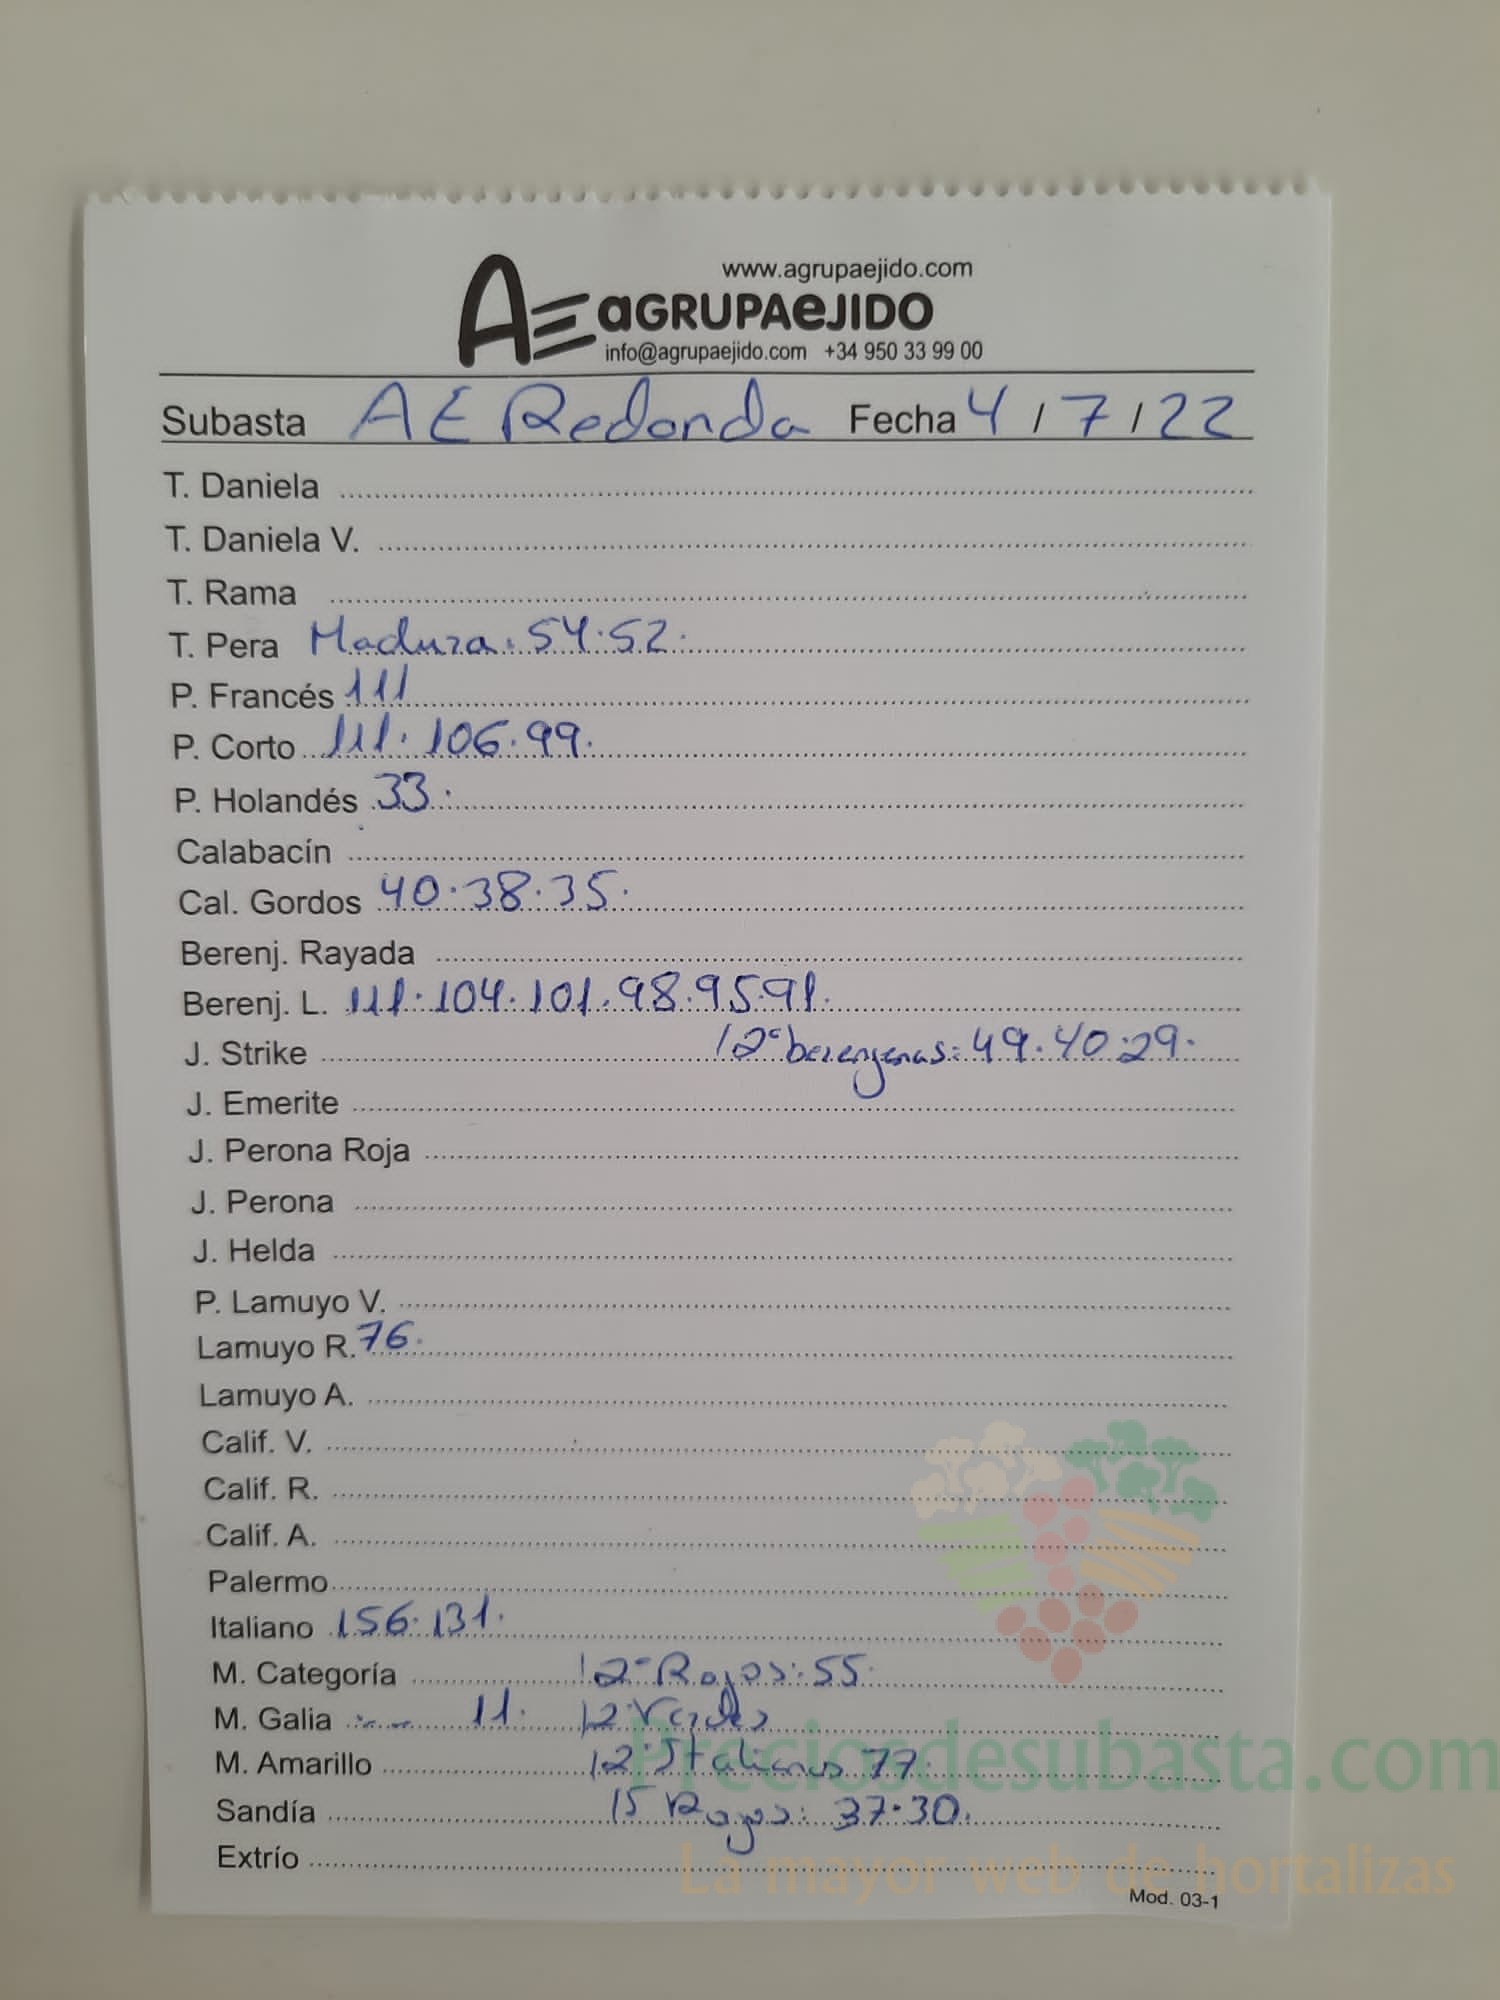 www.agrupaejido.com
AE aGRUPAeJIDO
info@agrupaejido.com +34 950 33 99 00
Subasta AE Redonda Fecha 4 / 7 / 22
T. Daniela
T. Daniela V.
T. Rama
T. Pera Madura. 54.52.
P. Francés 111
P. Corto 111. 106.99.
P. Holandés 33.
Calabacín
Cal. Gordos 40.38.35.
Berenj. Rayada
Berenj. L. 111.104.101.98.95.91.
J. Strike /2ª berenjenas: 49.40.29.
J. Emerite
J. Perona Roja
J. Perona
J. Helda
P. Lamuyo V.
Lamuyo R. 76.
Lamuyo A.
Calif. V.
Calif. R.
Calif. A.
Palermo
Italiano 156.131.
M. Categoría /2ª Rojos: 55.
M. Galia 11. /2ª Verdes
M. Amarillo /2ª Italianos 77.
Sandía 15 Rojos: 37.30.
Extrío
Mod. 03-1
Preciosdesubasta.com
La mayor web de hortalizas